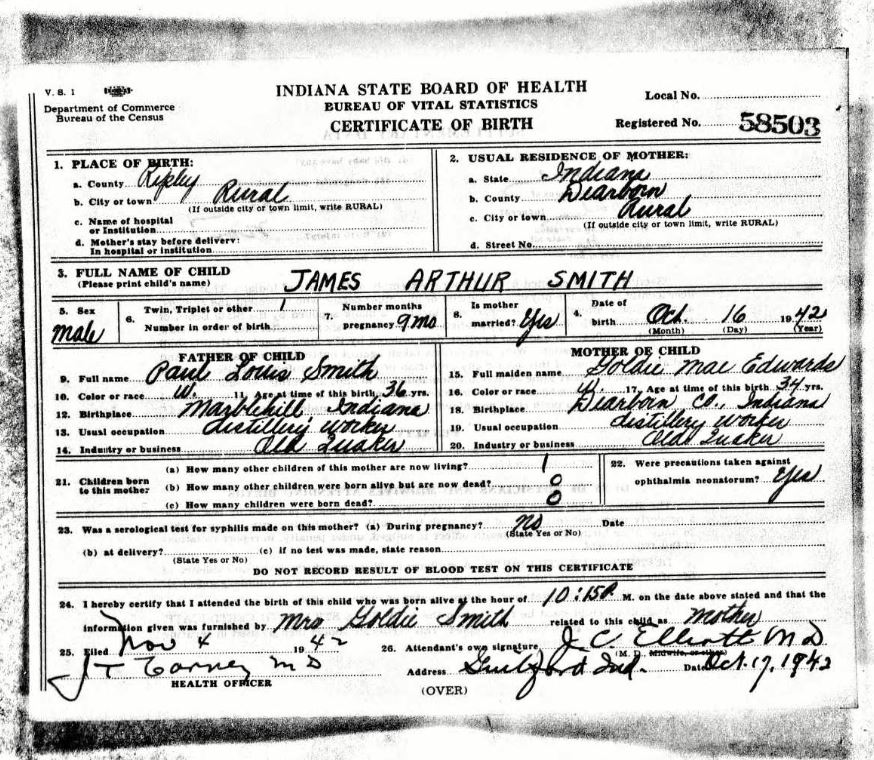 V. S. 1
INDIANA STATE BOARD OF HEALTH
Department of Commerce
Bureau of the Census
BUREAU OF VITAL STATISTICS
CERTIFICATE OF BIRTH
Local No.
Registered No. 58503
1. PLACE OF BIRTH:
a. County Ripley
b. City or town Rural
(If outside city or town limit, write RURAL)
c. Name of hospital
or Institution
d. Mother's stay before delivery:
In hospital or institution
2. USUAL RESIDENCE OF MOTHER:
a. State Indiana
b. County Dearborn
c. City or town Rural
(If outside city or town limit, write RURAL)
d. Street No.
3. FULL NAME OF CHILD JAMES ARTHUR SMITH
(Please print child's name)
5. Sex
male
6. Twin, Triplet or other 1
Number in order of birth
7. Number months
pregnancy 9 mo
8. Is mother
married? Yes
4. Date of
birth Oct. 16 1942
(Month) (Day) (Year)
FATHER OF CHILD
9. Full name Paul Louis Smith
10. Color or race W. 11. Age at time of this birth 36 yrs.
12. Birthplace Marblehill Indiana
13. Usual occupation distillery worker
14. Industry or business Old Quaker
MOTHER OF CHILD
15. Full maiden name Goldie Mae Edwards
16. Color or race W. 17. Age at time of this birth 34 yrs.
18. Birthplace Dearborn Co., Indiana
19. Usual occupation distillery worker
20. Industry or business Old Quaker
21. Children born
to this mother
(a) How many other children of this mother are now living? 1
(b) How many other children were born alive but are now dead? 0
(c) How many children were born dead? 0
22. Were precautions taken against
ophthalmia neonatorum? Yes
23. Was a serological test for syphilis made on this mother? (a) During pregnancy? no Date
(State Yes or No)
(b) at delivery? (c) if no test was made, state reason
(State Yes or No)
DO NOT RECORD RESULT OF BLOOD TEST ON THIS CERTIFICATE
24. I hereby certify that I attended the birth of this child who was born alive at the hour of 10:15 P. M. on the date above stated and that the
information given was furnished by Mrs Goldie Smith related to this child as mother
25. Filed Nov 4 1942
26. Attendant's own signature J. C. Elliott MD
(M. D., Midwife, or other)
MD
HEALTH OFFICER
Address Guilford Ind. Date Oct. 17, 1942
(OVER)